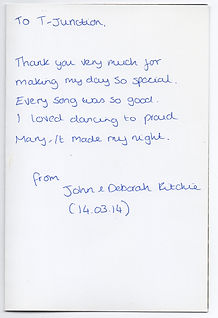 To T-Junction,
Thank you very much for
making my day so special.
Every song was so good.
I loved dancing to proud
Mary, It made my night.
from
John & Deborah Ritchie
(14.03.14)